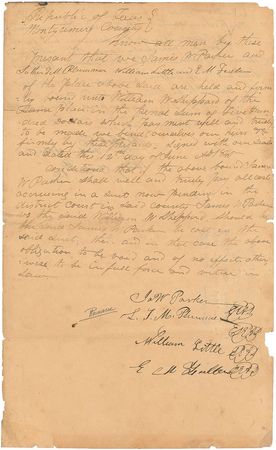 Republic of Texas
Montgomery County
Know all men by these
present that we James W Parker and
L. T. M. Plummer William Little and E M Fuller
of the place above said are held and firm
ly bound unto William W Sheppard of the
same place in the penal sum of
dred dollars which sum well and truly
to be made we bind ourselves our heirs
firmly by these presents signed with our seals
and dated this 12th day of June
Conditioned that if the above bound James
W Parker shall well and truly pay all costs
accruing in a suit now pending in the
district court in said county James W Parker
vs the said William W Sheppard should
the said James W Parker be cast in the
said suit then and in that case the above
obligation to be void and of no effect other
wise to be in full force and virtue in
Law
Jas W Parker
L. T. M. Plummer
William Little
E M Fuller